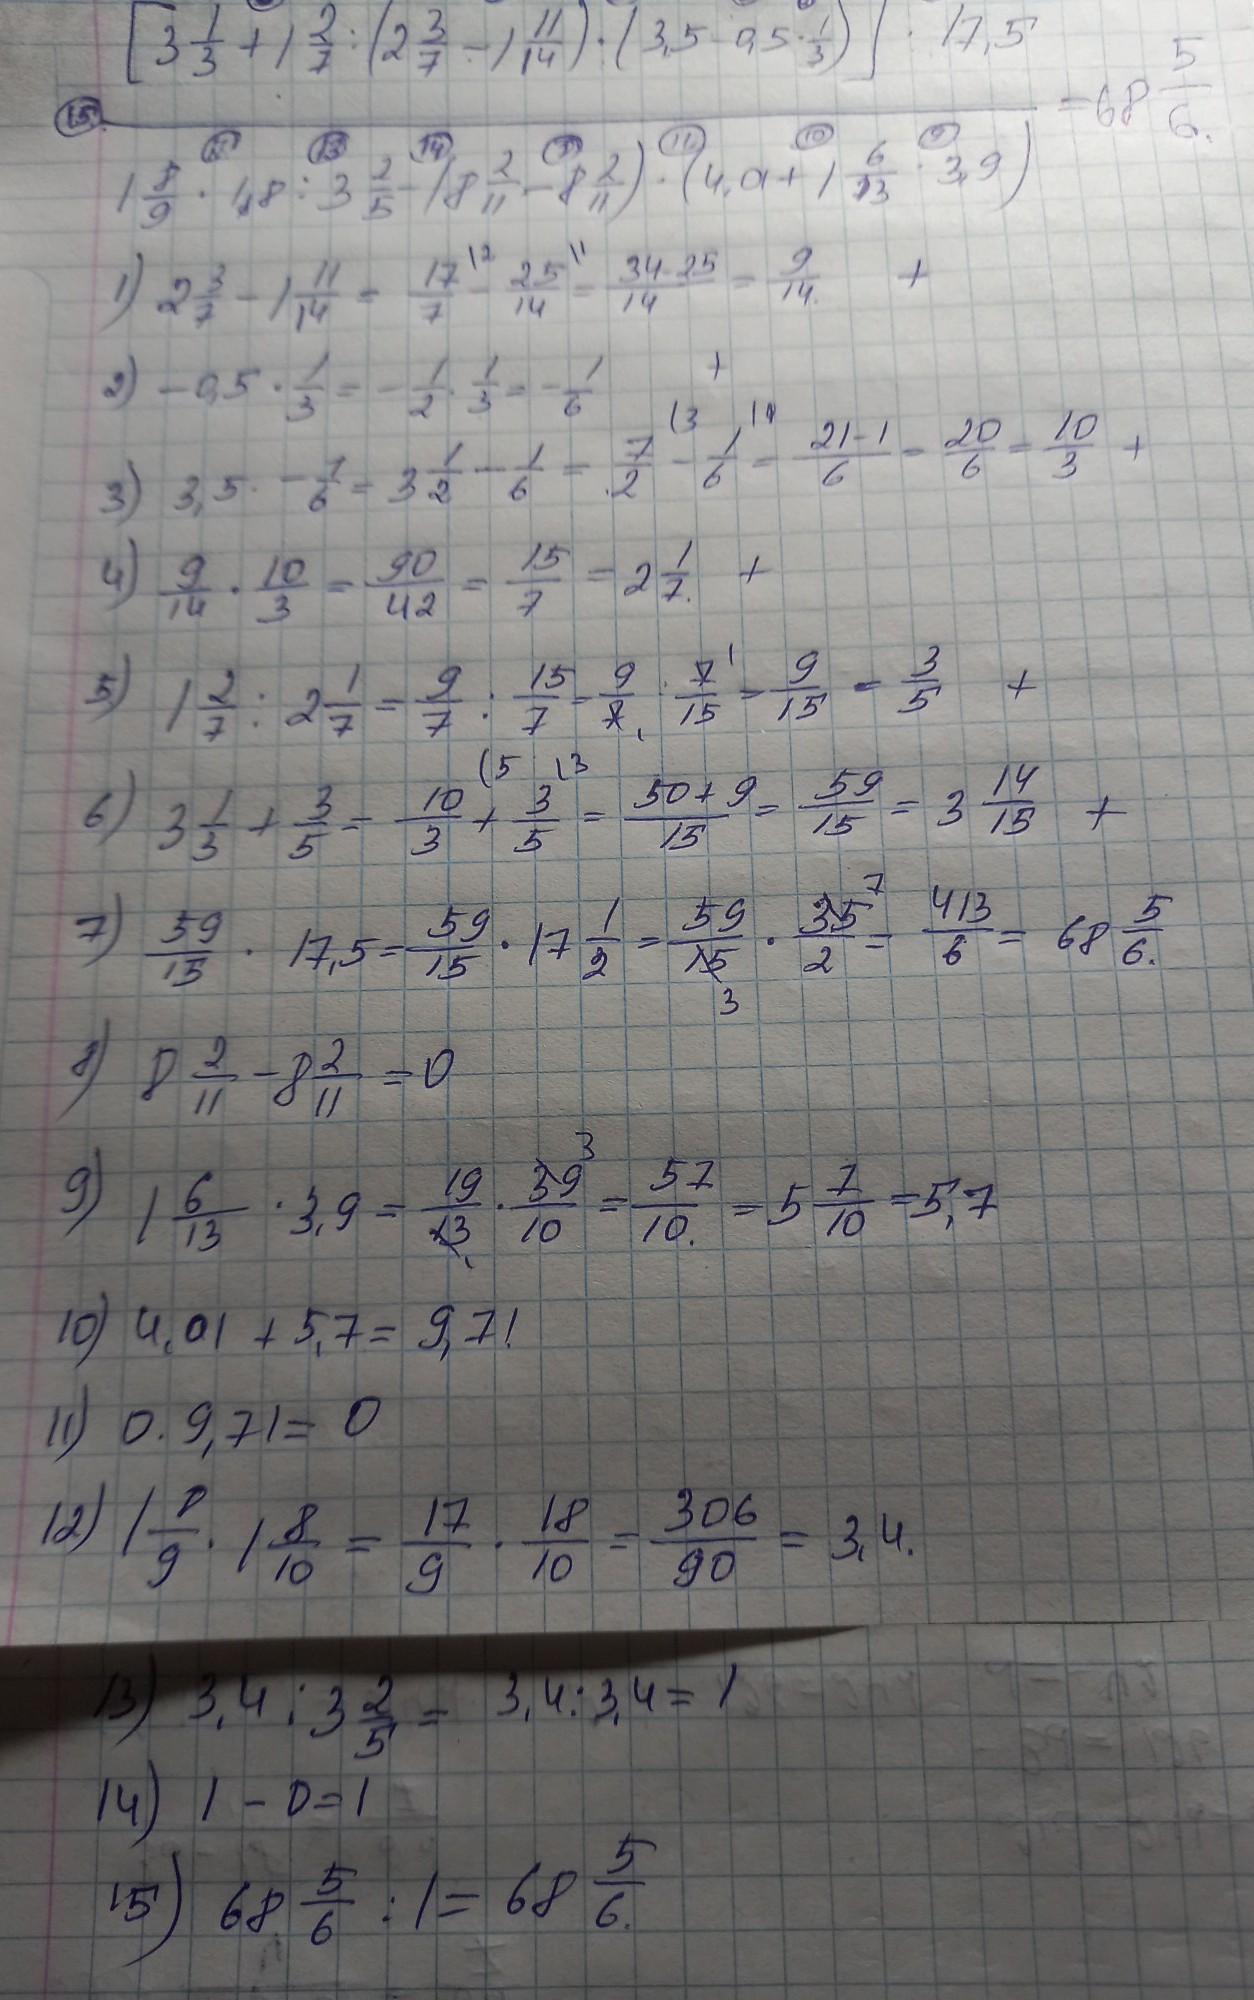 [3 1/3 + 1 2/7 : (2 3/7 - 1 11/14) · (3,5 - 0,5 · 1/3)] · 17,5
15 = 68 5/6.
12 13 14 11 10 9
1 8/9 · 1,8 : 3 2/5 - (8 2/11 - 8 2/11) · (4,01 + 1 6/13 · 3,9)
1) 2 3/7 - 1 11/14 = 17/7 - 25/14 = 34-25/14 = 9/14. +
2) -0,5 · 1/3 = -1/2 · 1/3 = -1/6 +
3) 3,5 - 1/6 = 3 1/2 - 1/6 = 7/2 - 1/6 = 21-1/6 = 20/6 = 10/3 +
4) 9/14 · 10/3 = 90/42 = 15/7 = 2 1/7. +
5) 1 2/7 : 2 1/7 = 9/7 : 15/7 = 9/7 · 7/15 = 9/15 = 3/5 +
6) 3 1/3 + 3/5 = 10/3 + 3/5 = 50+9/15 = 59/15 = 3 14/15 +
7) 59/15 · 17,5 = 59/15 · 17 1/2 = 59/15 · 35/2 = 413/6 = 68 5/6.
8) 8 2/11 - 8 2/11 = 0
9) 1 6/13 · 3,9 = 19/13 · 39/10 = 57/10. = 5 7/10 = 5,7
10) 4,01 + 5,7 = 9,71
11) 0 · 9,71 = 0
12) 1 8/9 · 1 8/10 = 17/9 · 18/10 = 306/90 = 3,4.
13) 3,4 : 3 2/5 = 3,4 : 3,4 = 1
14) 1 - 0 = 1
15) 68 5/6 : 1 = 68 5/6.